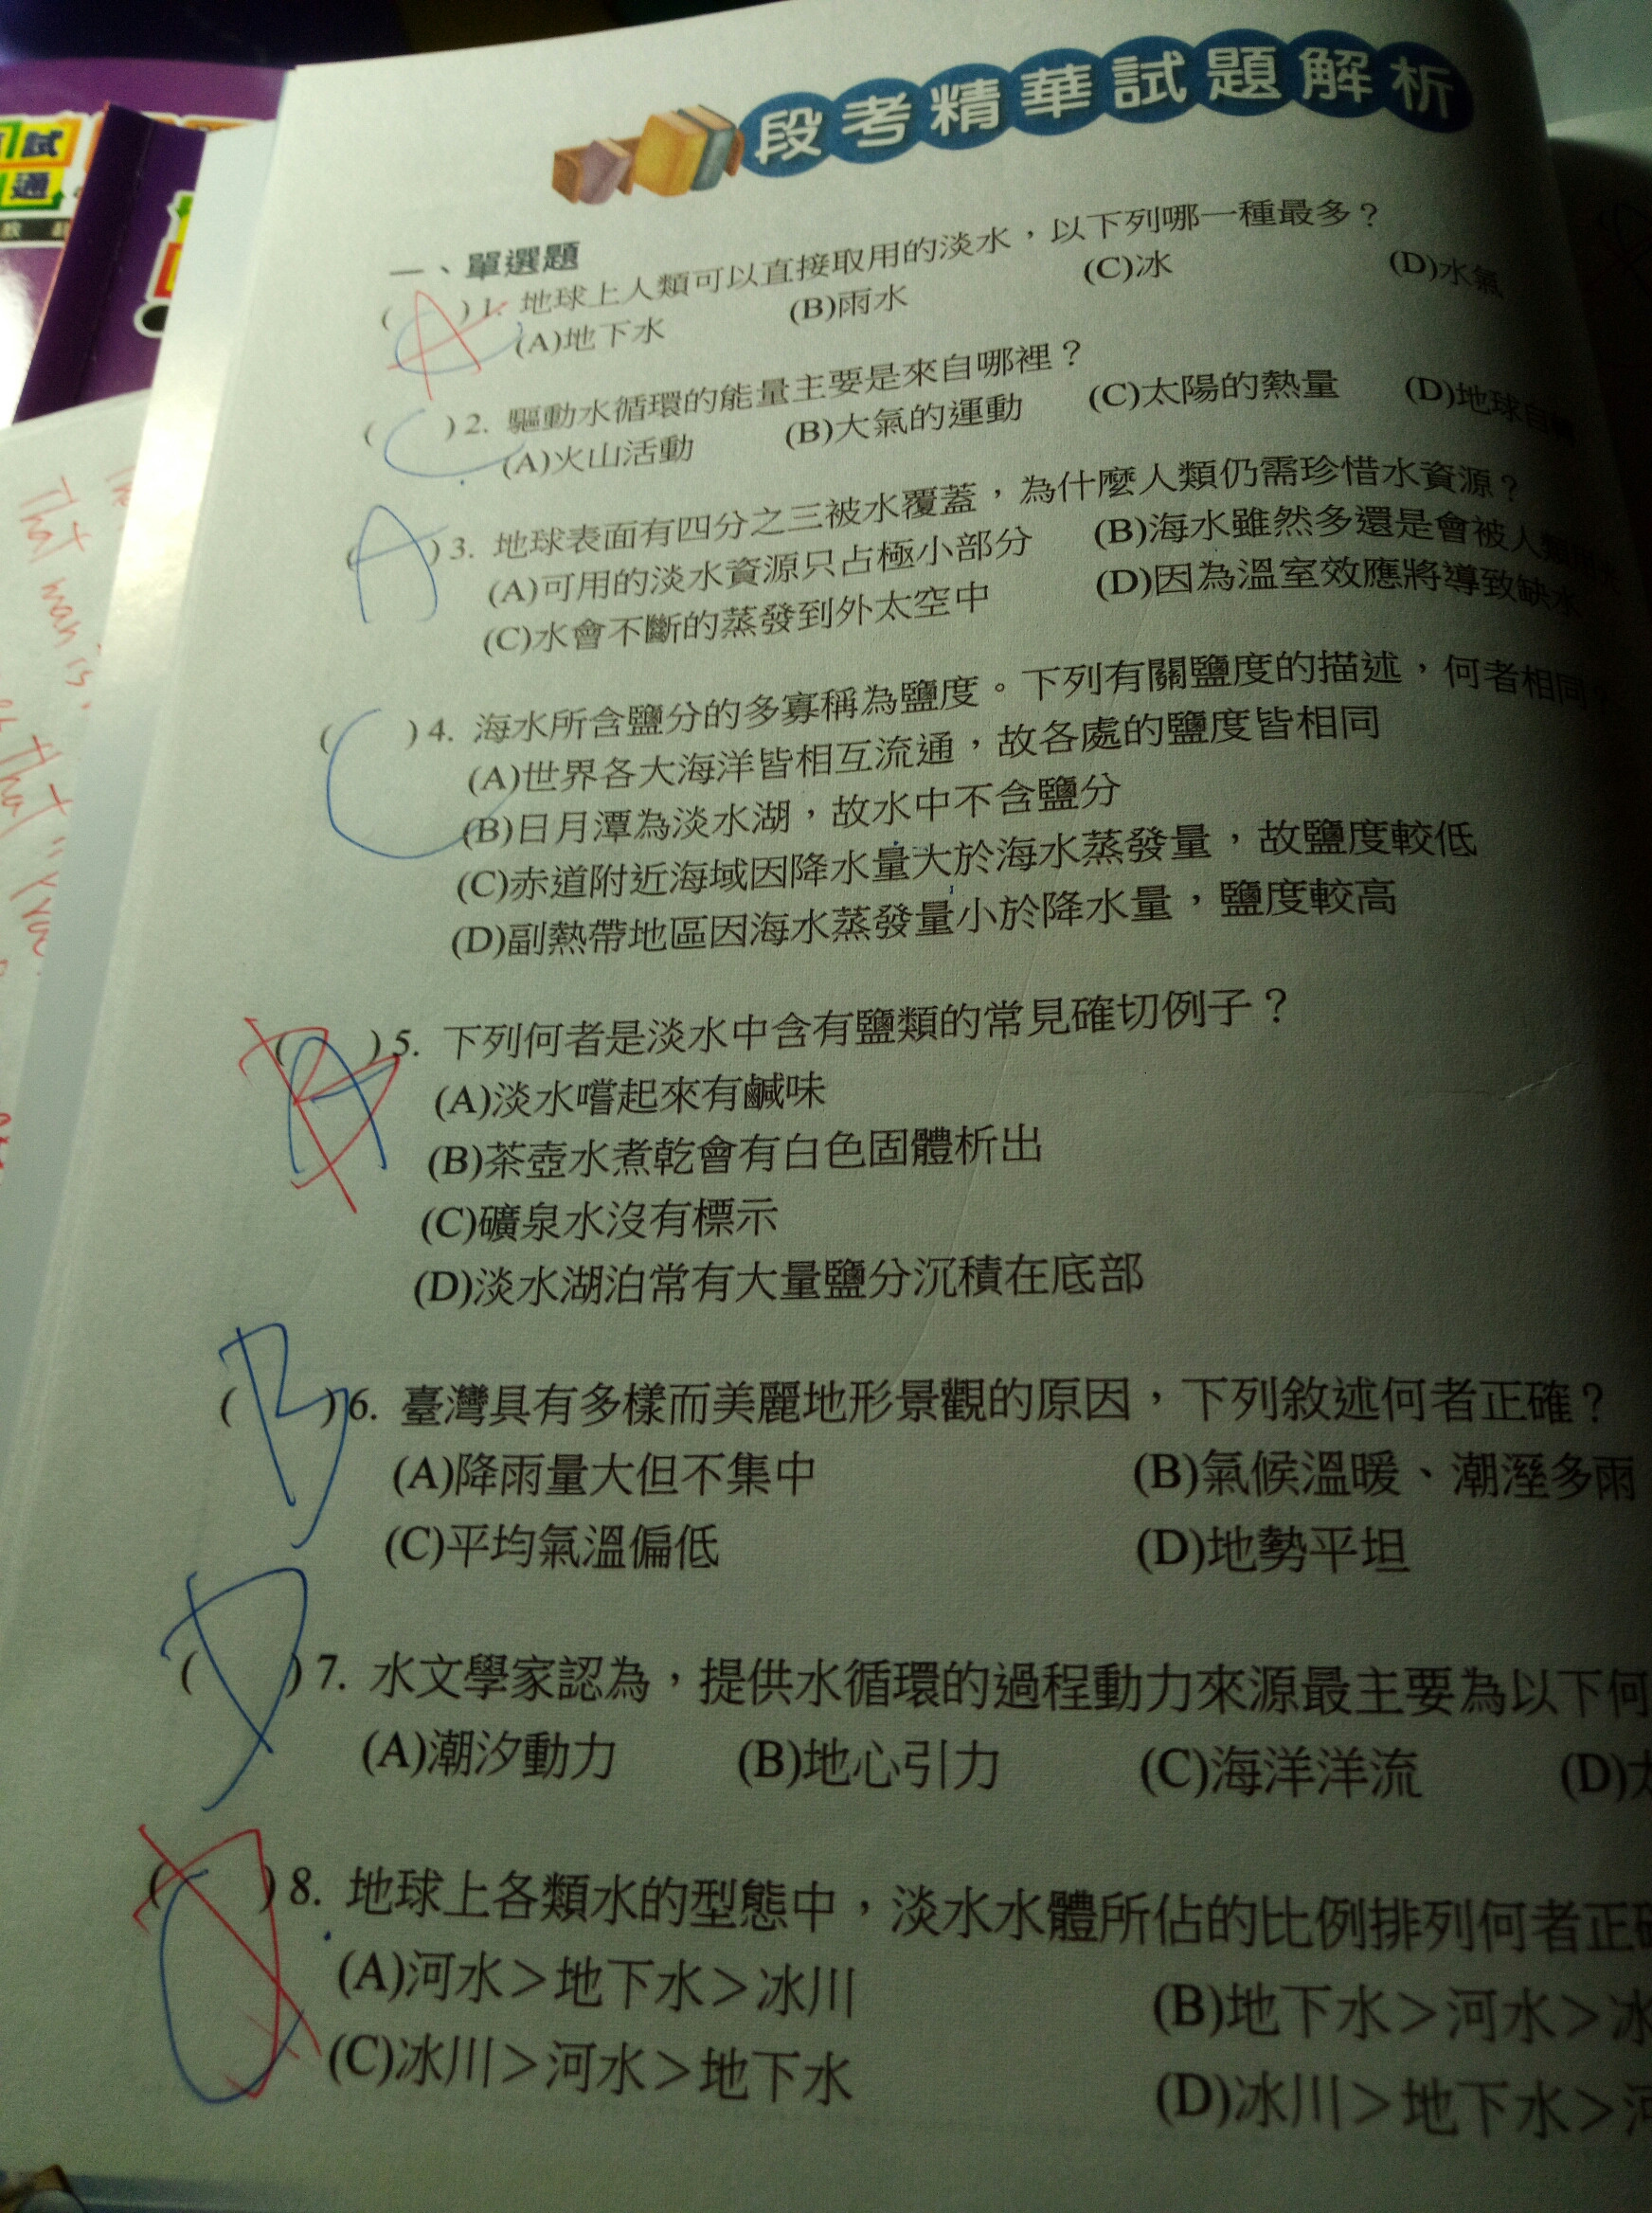 段考精華試題解析
一、單選題
( ) 1. 地球上人類可以直接取用的淡水，以下列哪一種最多？
(A)地下水 (B)雨水 (C)冰 (D)水氣
A
( ) 2. 驅動水循環的能量主要是來自哪裡？
(A)火山活動 (B)大氣的運動 (C)太陽的熱量 (D)地球自
C
( ) 3. 地球表面有四分之三被水覆蓋，為什麼人類仍需珍惜水資源？
(A)可用的淡水資源只占極小部分 (B)海水雖然多還是會被人
(C)水會不斷的蒸發到外太空中 (D)因為溫室效應將導致缺水
A
( ) 4. 海水所含鹽分的多寡稱為鹽度。下列有關鹽度的描述，何者相同
(A)世界各大海洋皆相互流通，故各處的鹽度皆相同
(B)日月潭為淡水湖，故水中不含鹽分
(C)赤道附近海域因降水量大於海水蒸發量，故鹽度較低
(D)副熱帶地區因海水蒸發量小於降水量，鹽度較高
C
( ) 5. 下列何者是淡水中含有鹽類的常見確切例子？
(A)淡水嚐起來有鹹味
(B)茶壺水煮乾會有白色固體析出
(C)礦泉水沒有標示
(D)淡水湖泊常有大量鹽分沉積在底部
A
B
( ) 6. 臺灣具有多樣而美麗地形景觀的原因，下列敘述何者正確？
(A)降雨量大但不集中 (B)氣候溫暖、潮溼多雨
(C)平均氣溫偏低 (D)地勢平坦
B
( ) 7. 水文學家認為，提供水循環的過程動力來源最主要為以下何
(A)潮汐動力 (B)地心引力 (C)海洋洋流 (D)太
D
( ) 8. 地球上各類水的型態中，淡水水體所佔的比例排列何者正確
(A)河水＞地下水＞冰川 (B)地下水＞河水＞冰
(C)冰川＞河水＞地下水 (D)冰川＞地下水＞河
C
D
試
通
That man is